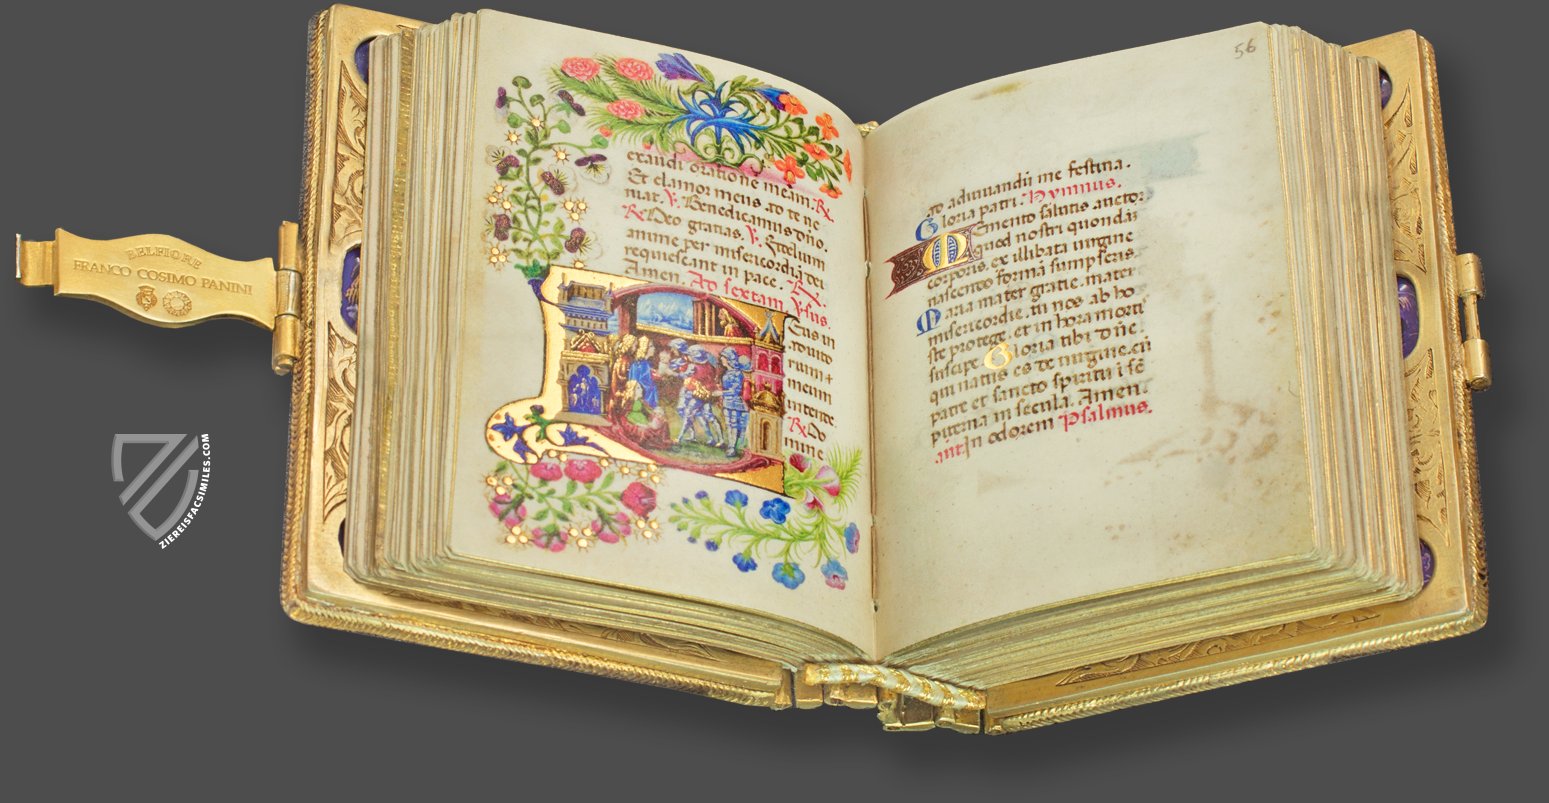 BELFIORE
FRANCO COSIMO PANINI
ZIEREISFACSIMILES.COM
exaudi oratione meam. R.
Et clamor meus ad te ve
niat. V. Benedicamus dño.
R. Deo gratias. V. Fidelium
anime per misericordiã dei
requiescant in pace. R.
Amen. Ad sextam. V'sus.
Eus in
adiuto
rium
meum
intende
R. Do
mine
56
ad adiuuandũ me festina.
Gloria patri. Hymnus.
Memento salutis auctor
quod nostri quondã
corporis, ex illibata uirgine
nascendo formã sumpseris.
Maria mater gratie, mater
misericordie, tu nos ab ho
ste protege, et in hora morti
suscipe. Gloria tibi dñe.
qui natus es de uirgine, cũ
patre et sancto spiritu ĩ sẽ
piterna in secula. Amen.
ant. In odorem Psalmus.